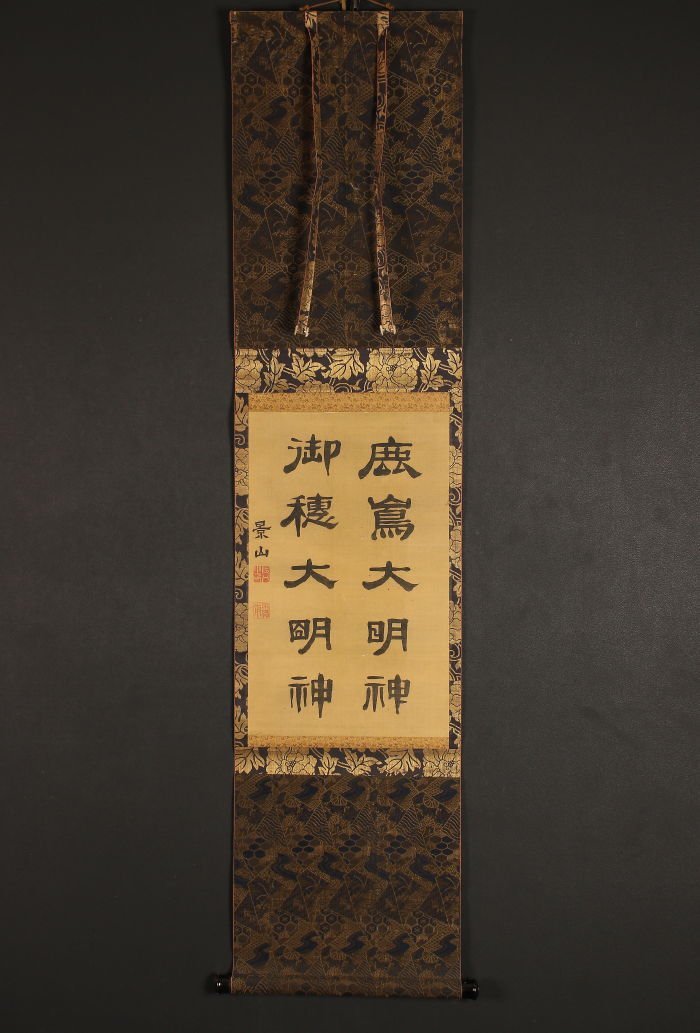 鹿嶌大明神
御穂大明神
景山